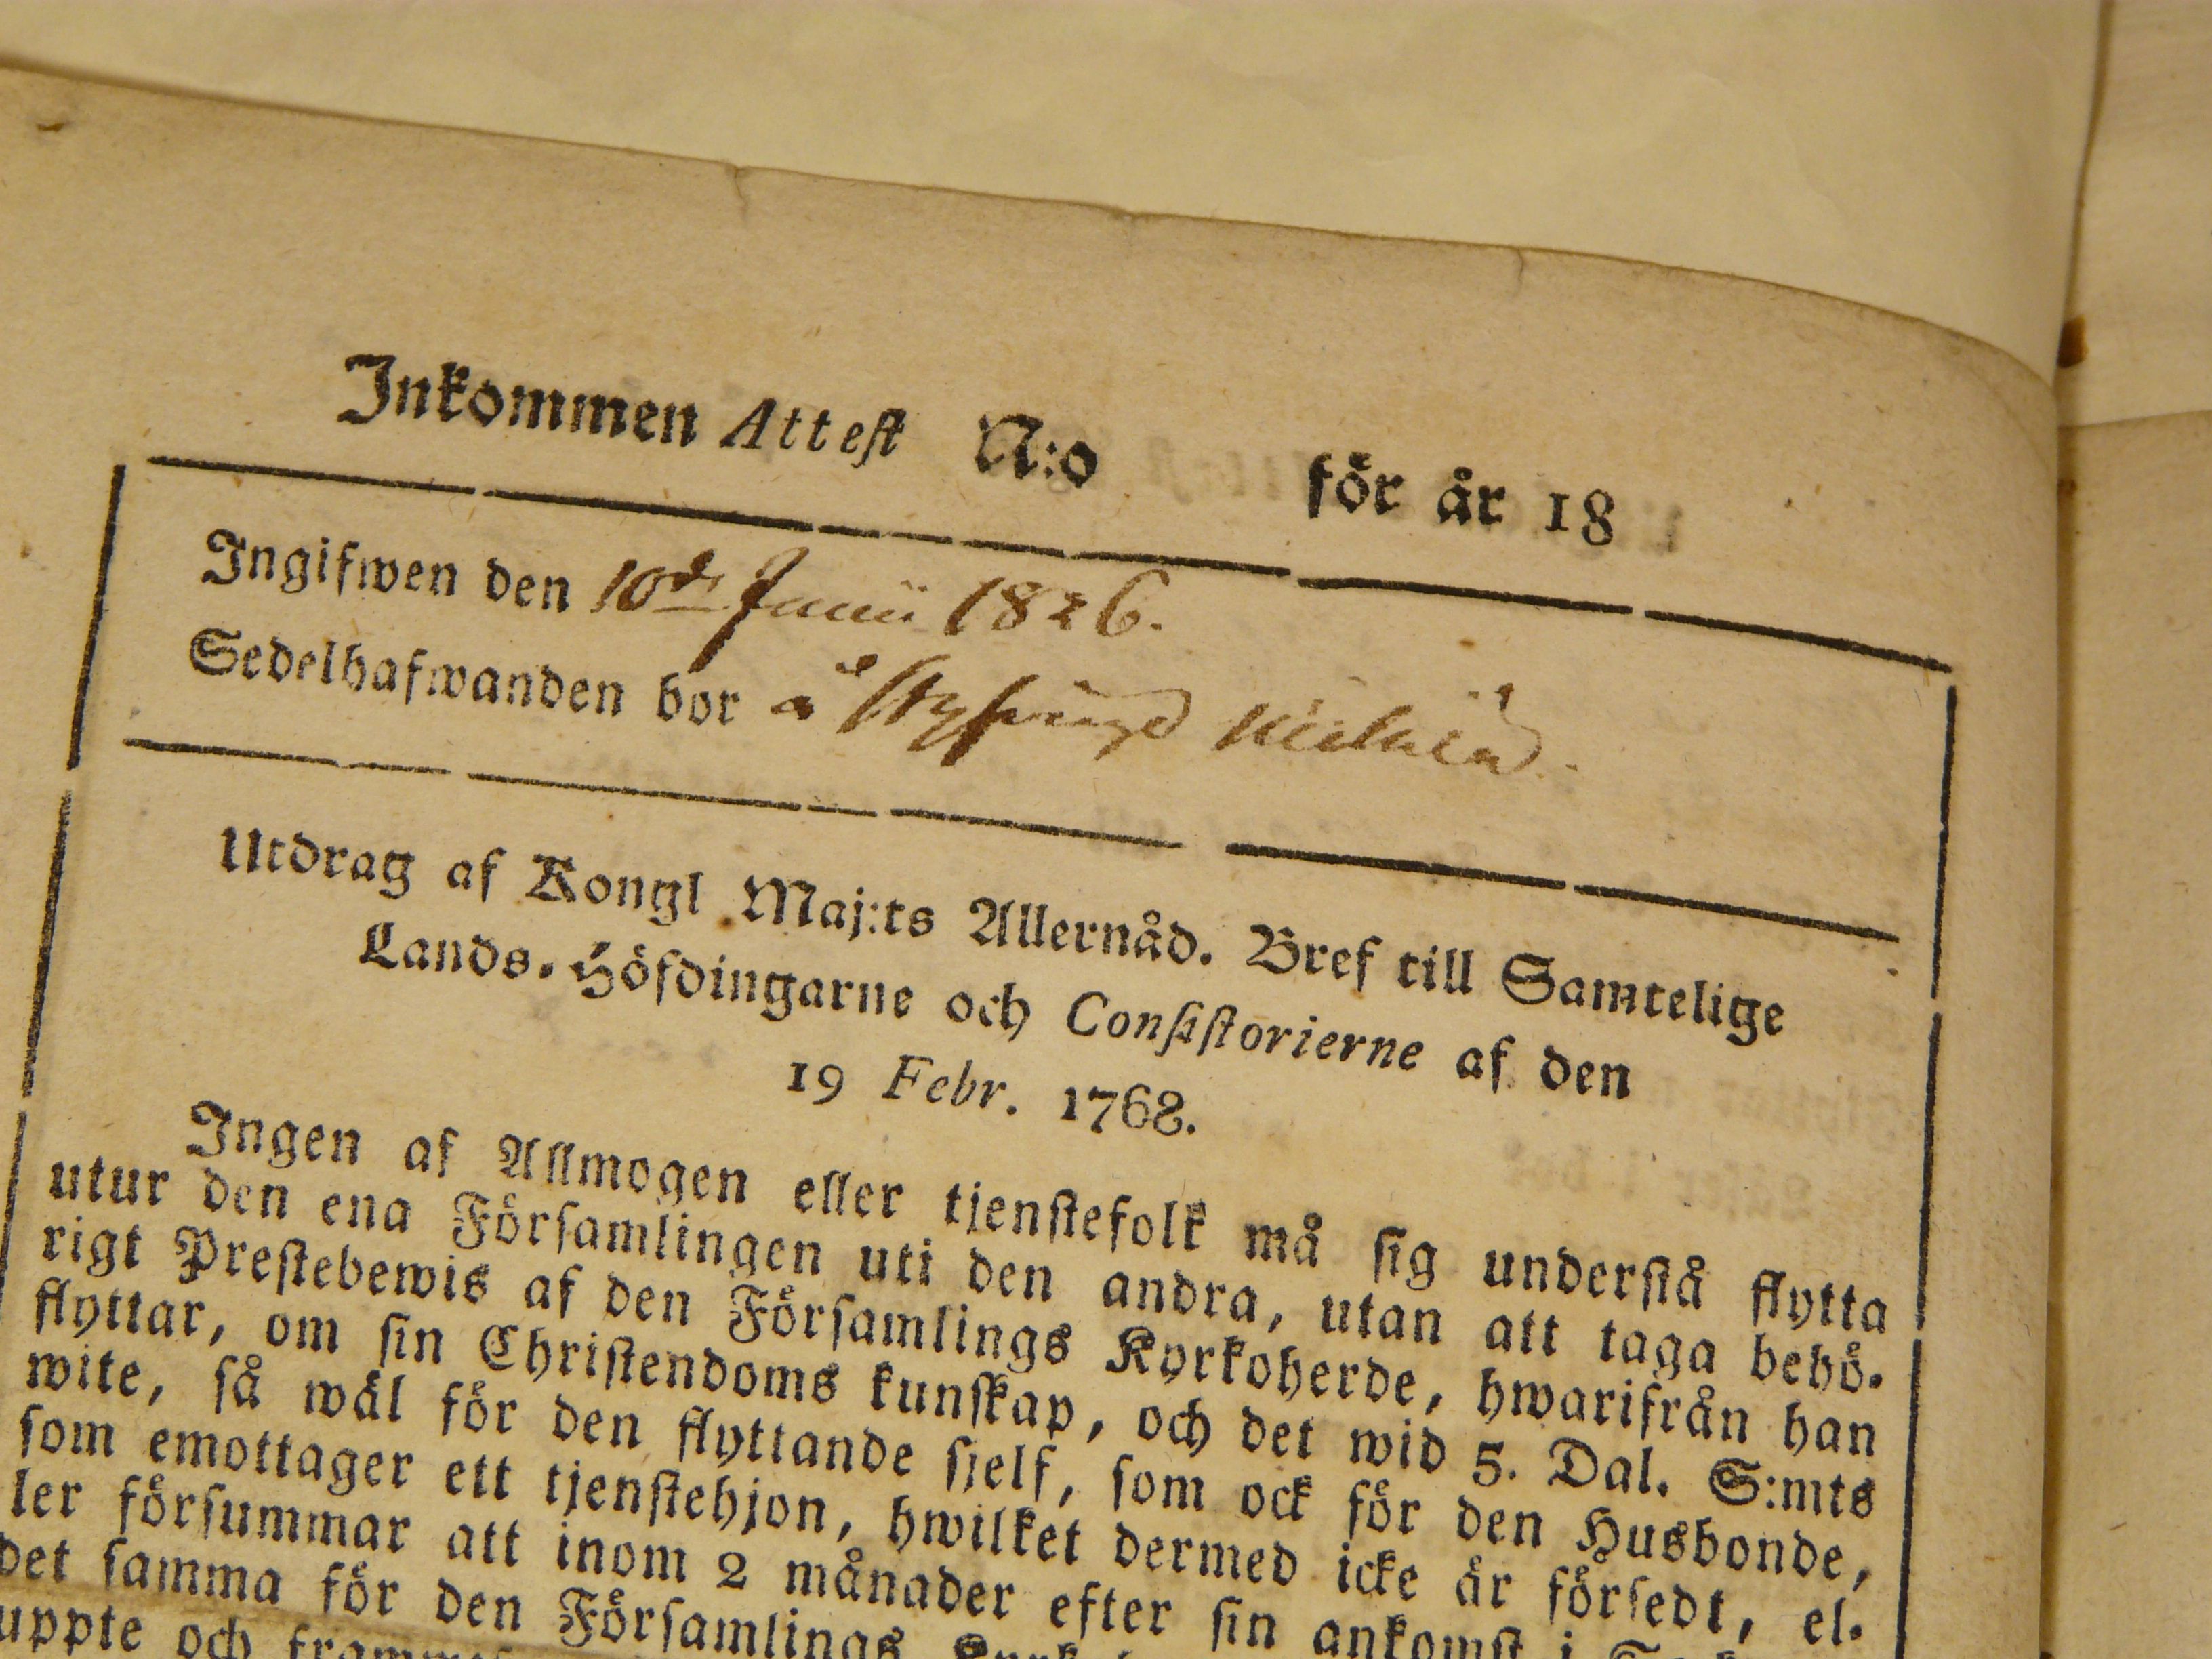 Inkommen Attest N:o för år 18
Ingifwen den 10de Junii 1826.
Sedelhafwanden bor å
Utdrag af Kongl. Maj:ts Allernåd. Bref till Samtelige
Lands-Höfdingarne och Consistorierne af den
19 Febr. 1768.
Ingen af Allmogen eller tjenstefolk må sig understå flytta
utur den ena Församlingen uti den andra, utan att taga behö-
rigt Prestebewis af den Församlings Kyrkoherde, hwarifrån han
flyttar, om sin Christendoms kunskap, och det wid 5. Dal. S:mts
wite, så wäl för den flyttande sjelf, som ock för den Husbonde,
som emottager ett tjenstehjon, hwilket dermed icke är försedt, el-
ler försummar att inom 2 månader efter sin ankomst i
det samma för den Församlings
uppte och